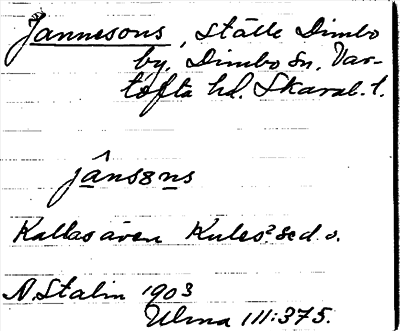 Jannesons, ställe Dimbo
by, Dimbo sn. Var-
tofta hd. Skarab. l.
jânsɜns
Kallas även Kules? se d. o.
N. Stalin 1903
Ulma 111:375.